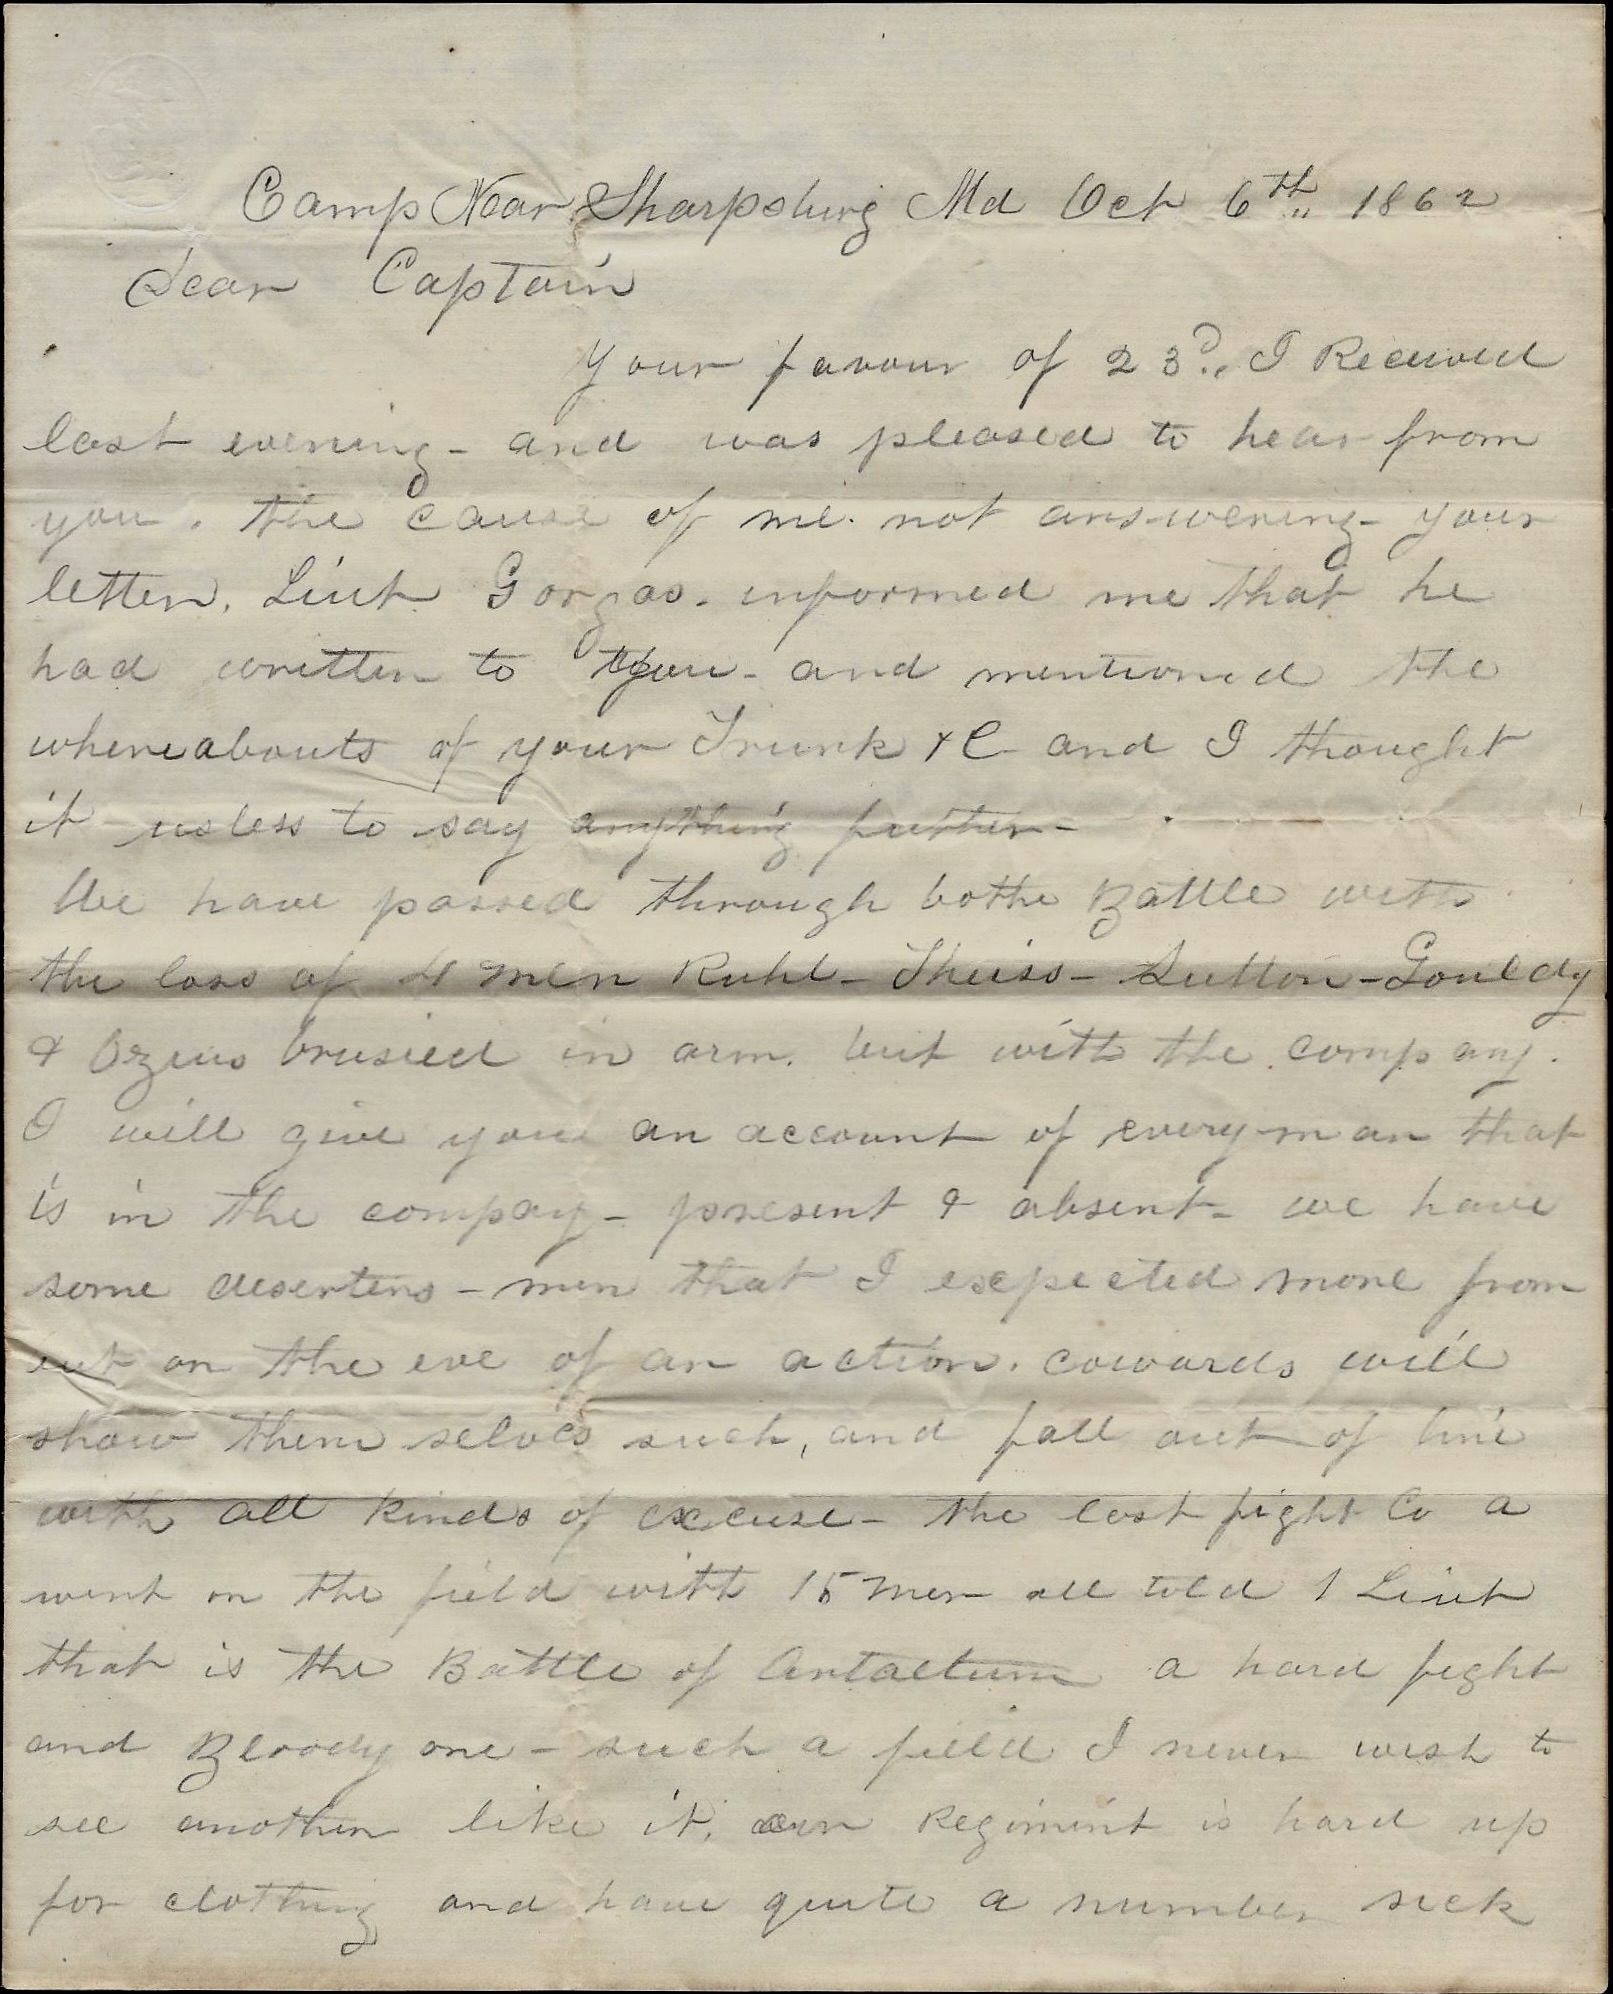 Camp Near Sharpsburg Md Oct 6th 1862
Dear Captain
Your favour of 23d I Received
last evening - and was pleased to hear from
you. the cause of me. not answering - your
letter. Liut Gorgas. informed me that he
had written to you - and mentioned the
whereabouts of your Trunk &C and I thought
it usless to say anything further -
We have passed through bothe Battle with
the loss of 4 men Ruhl - Theiss - Sutton - Gouldy
& Ozius brusied in arm. but with the company.
I will give you an account of every man that
is in the compay - present & absent - we have
some deserters - men that I expected more from
but on the eve of an action. cowards will
show them selves such, and fall out of line
with all kinds of excuse - the last fight Co a
went on the field with 15 men all told 1 Liut
that is the Battle of Antaetum a hard fight
and Bloody one - such a field I never wish to
see another like it. our Regimint is hard up
for clothing and have quite a number sick